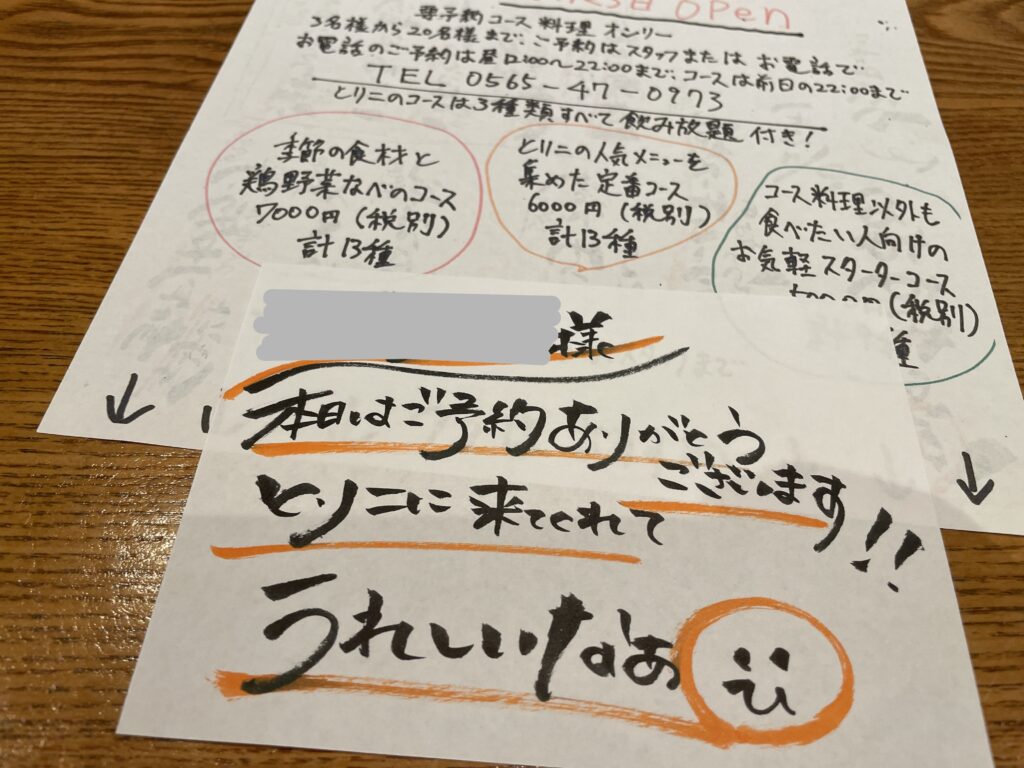 OPen
要予約コース料理オンリー
3名様から20名様まで、ご予約はスタッフまたはお電話で
お電話のご予約は昼12:00〜22:00まで、コースは前日の22:00まで
TEL 0565-47-0973
とリこのコースは3種類すべて飲み放題付き!
季節の食材と
鶏野菜なべのコース
7000円(税別)
計13種
とりこの人気メニューを
集めた定番コース
6000円(税別)
計13種
コース料理以外も
食べたい人向けの
お気軽スターターコース
(税別)
種
様
本日はご予約ありがとう
ございます!!
とりこに来てくれて
うれしいなぁ